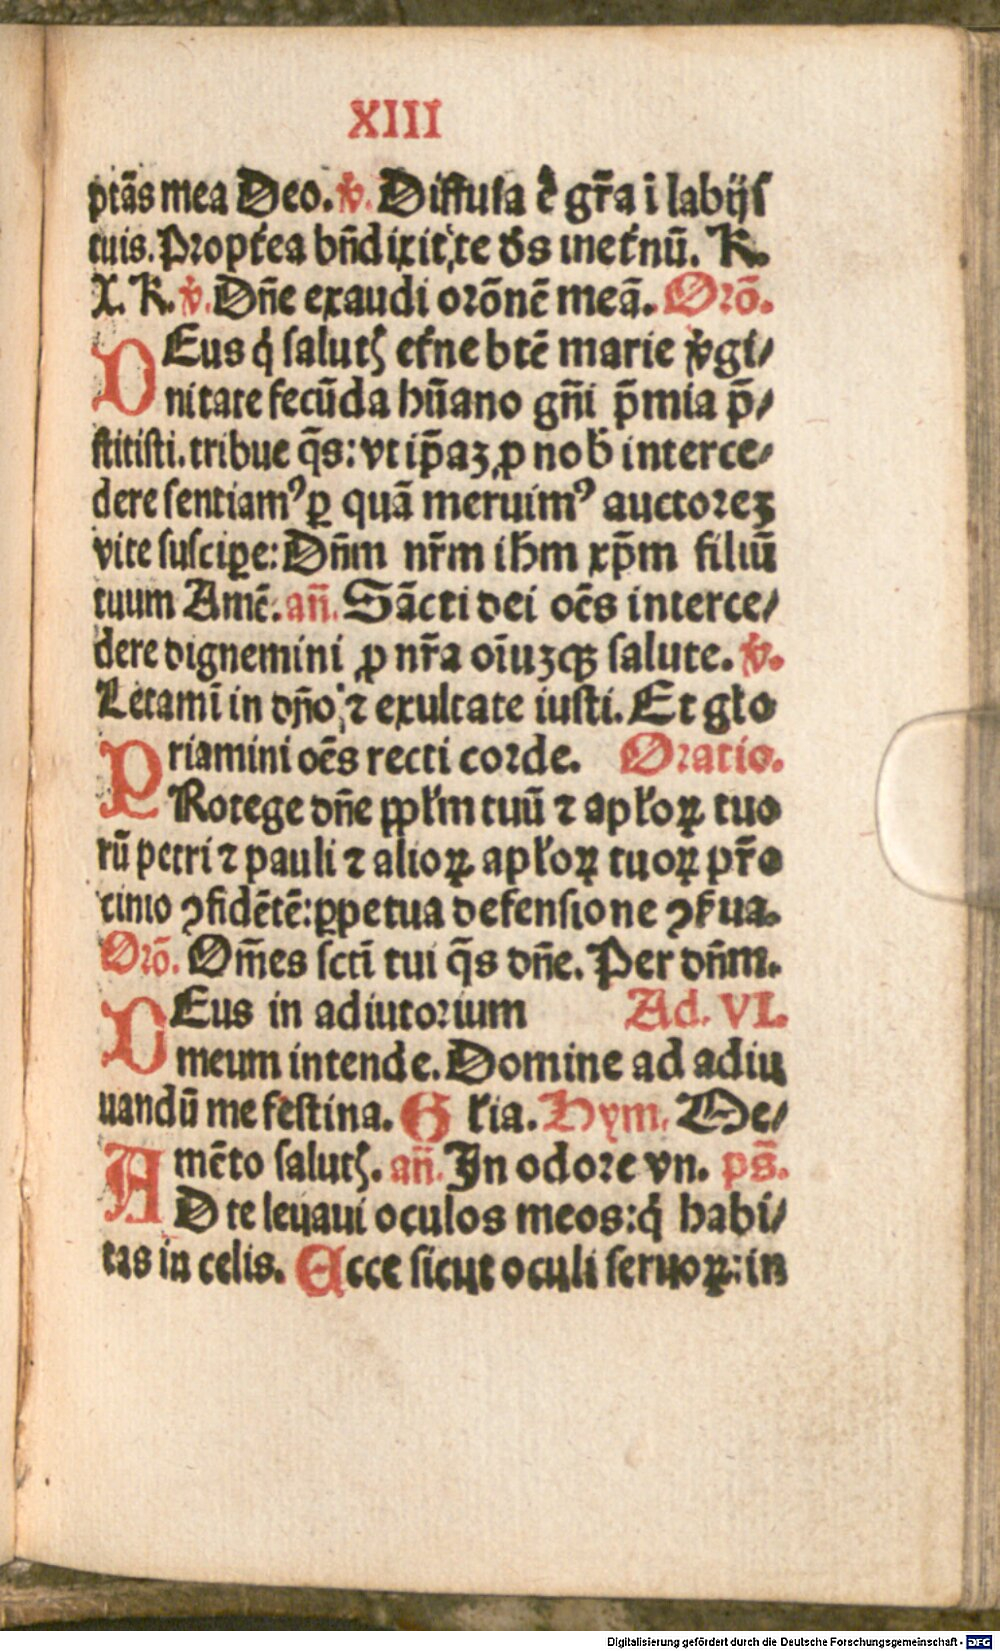 XIII
ptãs mea Deo. ꝟ. Diffusa ẽ gr̃a ĩ labijs
tuis. Propt̾ea bñdixit te de᷒s inet̾nũ. K.
X. K. ꝟ. Dñe exaudi orõnẽ meã. Orõ.
DEus q̇ salutꝭ et̾ne btẽ marie ꝟgi⸗
nitate fecũda hũano gñi p̃mia p̃⸗
stitisti. tribue q̃s: vt ip̃aꝫ ꝓ nob̾ interce⸗
dere sentiamꝰ ꝑ quã meruimꝰ auctoreꝫ
vite suscipe: Dñm nr̃m ihm xp̃m filiũ
tuum Amẽ. añ. Sãcti dei oẽs interce⸗
dere dignemini ꝓ nr̃a oĩuꝫqꝫ salute. ꝟ.
Letamĩ in dño ⁊ exultate iusti. Et glo
riamini oẽs recti corde. Oratio.
PRotege dñe pp̄lm tuũ ⁊ apłoꝝ tuo
rũ petri ⁊ pauli ⁊ alioꝝ apłoꝝ tuoꝝ pr̃o
cinio ꝯfidẽtẽ: ꝑpetua defensione ꝯẜua.
Orõ. Om̃es sctĩ tui q̃s dñe. Per dñm.
DEus in adiutorium Ad. VI.
meum intende. Domine ad adiu
uandũ me festina. G lr̃ia. Hym. Me⸗
mẽto salutꝭ. añ. In odore vn. ps̃.
AD te leuaui oculos meos: q̇ habi⸗
tas in celis. Ecce sicut oculi seruoꝝ: in
Digitalisierung gefördert durch die Deutsche Forschungsgemeinschaft - DFG